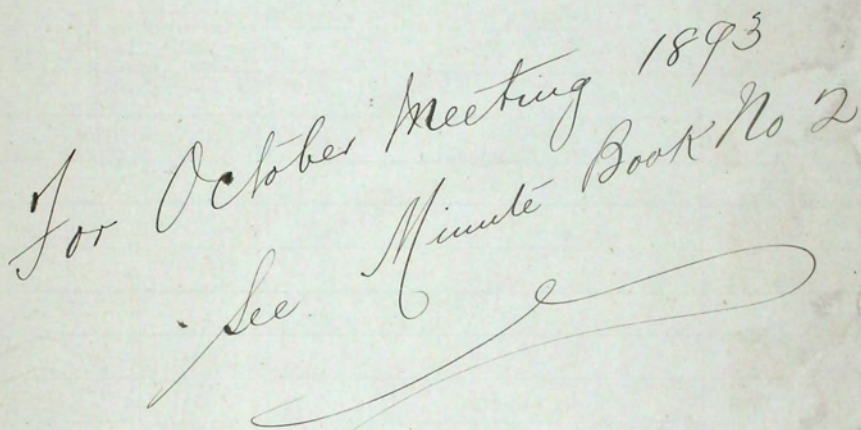 For October Meeting 1893
See Minute Book No 2